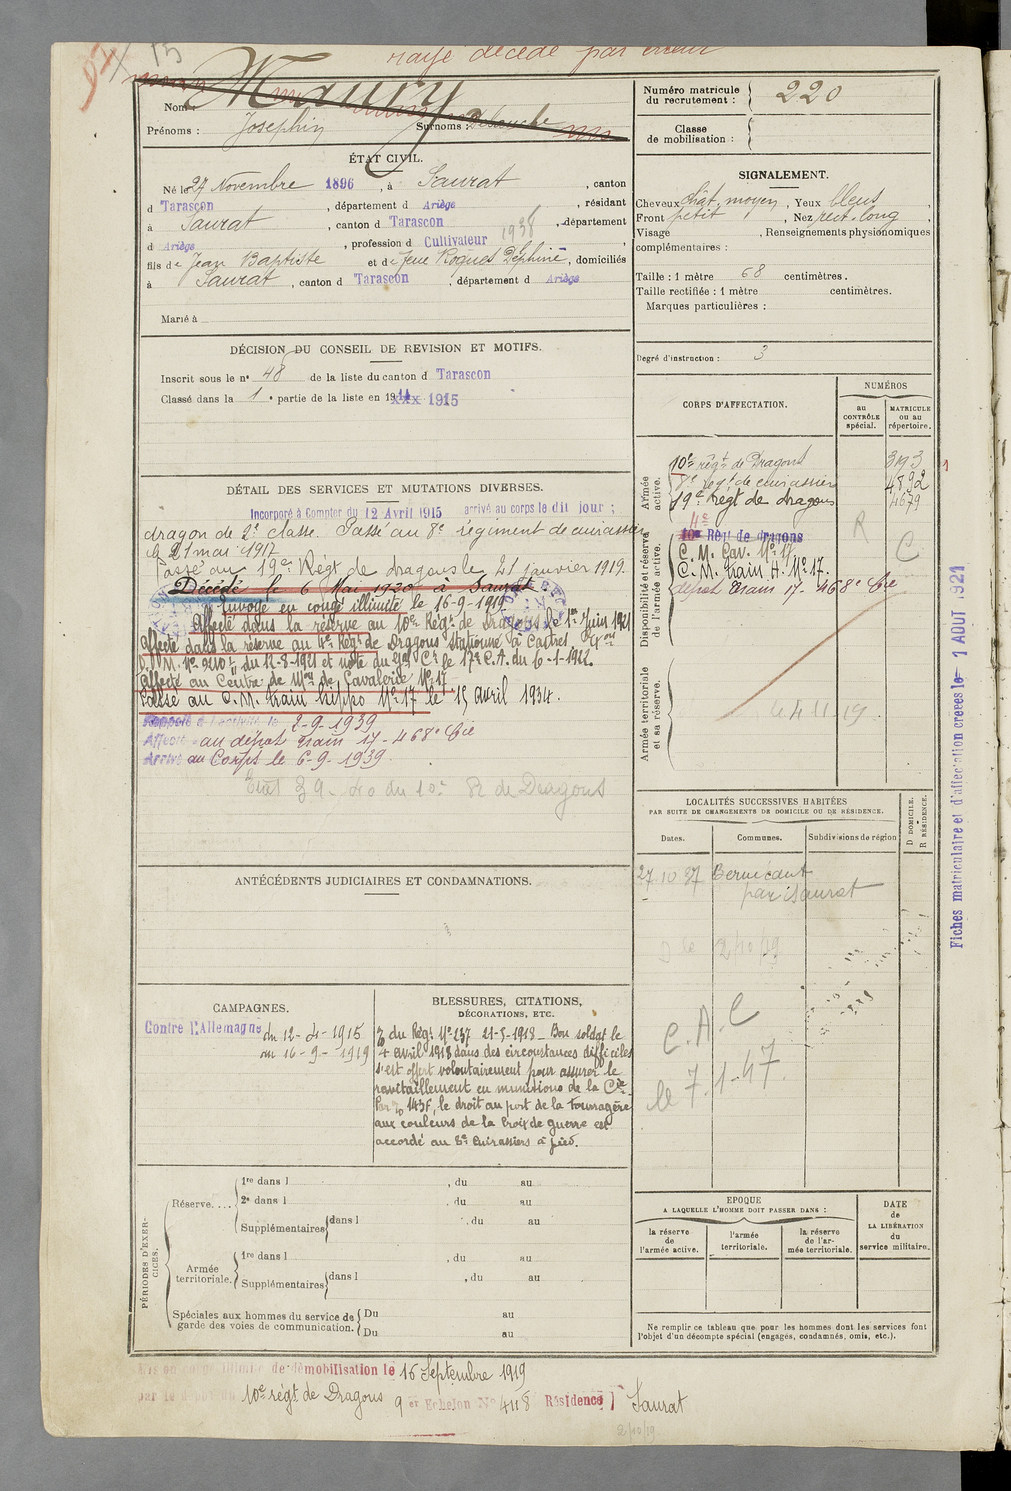 rayé décédé par erreur
Nom : Maury
Prénoms : Josephin Surnoms :
Numéro matricule du recrutement : 220
Classe de mobilisation :
ÉTAT CIVIL.
Né le 27 Novembre 1896, à Saurat, canton
d Tarascon, département d Ariège, résidant
à Saurat, canton d Tarascon, département
d Ariège, profession d Cultivateur
1938
fils de Jean Baptiste et de feue Roques Delphine, domiciliés
à Saurat, canton d Tarascon, département d Ariège
Marié à
SIGNALEMENT.
Cheveux chât. moyen, Yeux bleus,
Front petit, Nez rect. long,
Visage , Renseignements physionomiques
complémentaires :
Taille : 1 mètre 68 centimètres.
Taille rectifiée : 1 mètre centimètres.
Marques particulières :
Degré d'instruction : 3
DÉCISION DU CONSEIL DE REVISION ET MOTIFS.
Inscrit sous le n° 48 de la liste du canton d Tarascon
Classé dans la 1e partie de la liste en 1914 xxx 1915
DÉTAIL DES SERVICES ET MUTATIONS DIVERSES.
Incorporé à Compter du 12 Avril 1915 arrivé au corps le dit jour ;
dragon de 2e classe. Passé au 8e régiment de cuirassiers
le 21 mai 1917
Passé au 19e Régt de dragons le 21 janvier 1919.
Décédé le 6 Mai 1920 à Saurat
Envoyé en congé illimité le 16-9-1919
Affecté dans la réserve au 10e Régt de Dragons le 1er Juin 1921
Affecté dans la réserve au 4e Régt de Dragons stationné à Castres
du 12-8-1921 et note du Gal Ct le 17e C.A. du 6-1-1922.
Affecté au Centre de Mon de Cavalerie N° 17
Passé au C.M. train hippo N° 17 le 15 Avril 1934.
Rappelé à l'activité le 2-9-1939
Affecté au dépôt train 17 - 468e Cie
Arrivé au Corps le 6-9-1939.
CORPS D'AFFECTATION.
NUMÉROS
au CONTRÔLE spécial.
MATRICULE ou au répertoire.
Armée active.
10e régt de Dragons 393
8e régt de cuirassiers 4892
19e Régt de dragons 4679
Disponibilité et réserve de l'armée active.
4e
10e Régt de dragons
C. M. Cav. N° 17
C. M. train H. N° 17.
dépôt train 17 - 468e Cie
R
C
Armée territoriale et sa réserve.
Fiches matriculaire et d'affectation créées le 1 AOUT 1921
ANTÉCÉDENTS JUDICIAIRES ET CONDAMNATIONS.
LOCALITÉS SUCCESSIVES HABITÉES
PAR SUITE DE CHANGEMENTS DE DOMICILE OU DE RÉSIDENCE.
Dates. Communes. Subdivisions de région D DOMICILE. R RÉSIDENCE.
27 10 37
par Saurat
2/10/19
C. A. C
le 7.1-47
CAMPAGNES.
Contre l'Allemagne du 12-4-1915
au 16-9-1919
BLESSURES, CITATIONS,
DÉCORATIONS, ETC.
O du Régt N° 237 21-5-1918 - Bon soldat le
4 avril 1918 dans des circonstances difficiles
s'est offert volontairement pour assurer le
ravitaillement en munitions de la Cie
Par O 143F, le droit au port de la fourragère
aux couleurs de la Croix de guerre est
accordé au 8e Cuirassiers à pied.
PÉRIODES D'EXERCICES.
Réserve.... 1re dans l , du au
2e dans l , du au
Supplémentaires dans l , du au
Armée territoriale. 1re dans l , du au
Supplémentaires dans l , du au
Spéciales aux hommes du service de garde des voies de communication. Du au
Du au
EPOQUE
A LAQUELLE L'HOMME DOIT PASSER DANS :
la réserve de l'armée active.
l'armée territoriale.
la réserve de l'armée territoriale.
DATE de LA LIBÉRATION du service militaire.
Ne remplir ce tableau que pour les hommes dont les services font
l'objet d'un décompte spécial (engagés, condamnés, omis, etc.).
Mis en congé illimité de démobilisation le 16 Septembre 1919
par le dépôt du 10e régt de Dragons 9er Echelon N° 4118 Résidence Saurat
2/10/19